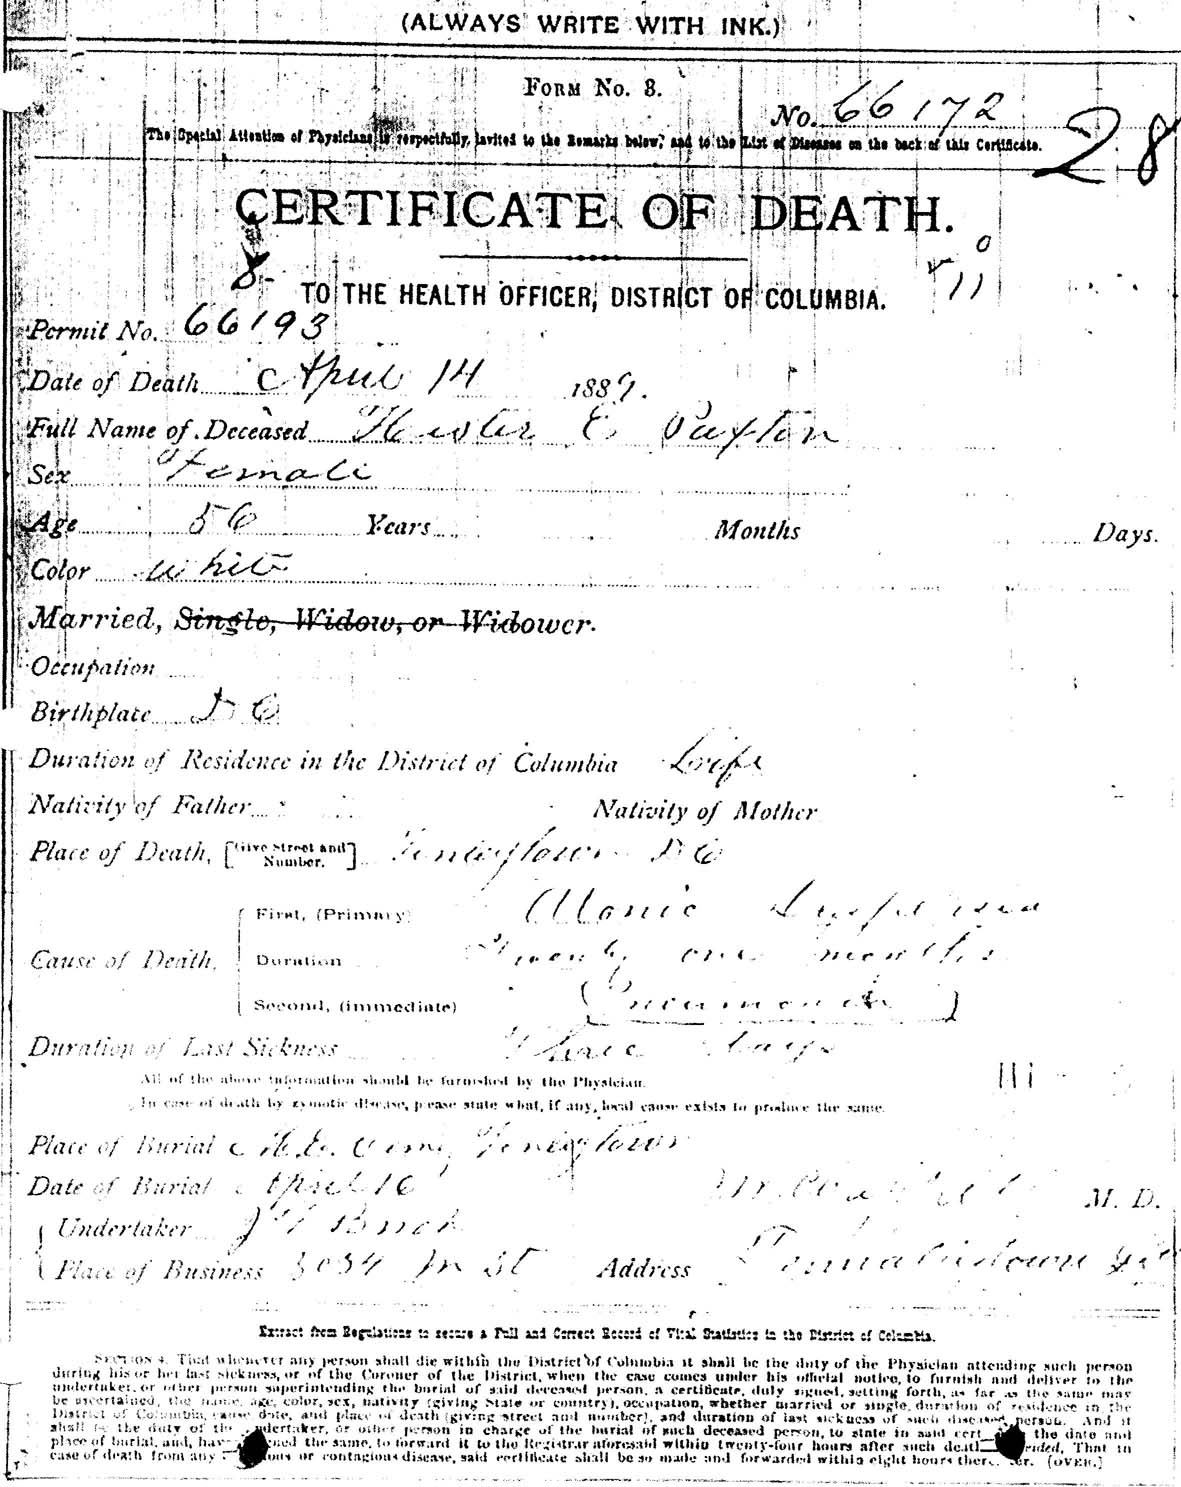 (ALWAYS WRITE WITH INK.)
FORM NO. 8.
No. 66172
28
The Special Attention of Physicians is respectfully invited to the Remarks below, and to the List of Diseases on the back of this Certificate.
CERTIFICATE OF DEATH.
8-
TO THE HEALTH OFFICER, DISTRICT OF COLUMBIA.
11
Permit No. 66193
Date of Death April 14 1889.
Full Name of Deceased Hester E Paxton
Sex Female
Age 56 Years Months Days.
Color White
Married, Single, Widow, or Widower.
Occupation
Birthplace D C
Duration of Residence in the District of Columbia Life
Nativity of Father Nativity of Mother
Place of Death, [Give Street and Number.] Tenleytown D C
Cause of Death,
First, (Primary) Atonic Dyspepsia
Duration Twenty one months
Second, (immediate) (Pneumonia)
Duration of Last Sickness Three days
All of the above information should be furnished by the Physician.
In case of death by zymotic disease, please state what, if any, local cause exists to produce the same.
Place of Burial M.E. Cem, Tenleytown
Date of Burial April 16
M. D.
Undertaker Birch
Place of Business 3034 M St Address
Extract from Regulations to secure a Full and Correct Record of Vital Statistics in the District of Columbia.
SECTION 4. That whenever any person shall die within the District of Columbia it shall be the duty of the Physician attending such person
during his or her last sickness, or of the Coroner of the District, when the case comes under his official notice, to furnish and deliver to the
undertaker, or other person superintending the burial of said deceased person, a certificate, duly signed, setting forth, as far as the same may
be ascertained, the name, age, color, sex, nativity (giving State or country), occupation, whether married or single, duration of residence in the
District of Columbia, cause, date, and place of death (giving street and number), and duration of last sickness of such deceased person. And it
shall be the duty of the undertaker, or other person in charge of the burial of such deceased person, to state in said cert the date and
place of burial, and, having signed the same, to forward it to the Registrar aforesaid within twenty-four hours after such death ended, That in
case of death from any or contagious disease, said certificate shall be so made and forwarded within eight hours thereafter. (OVER.)